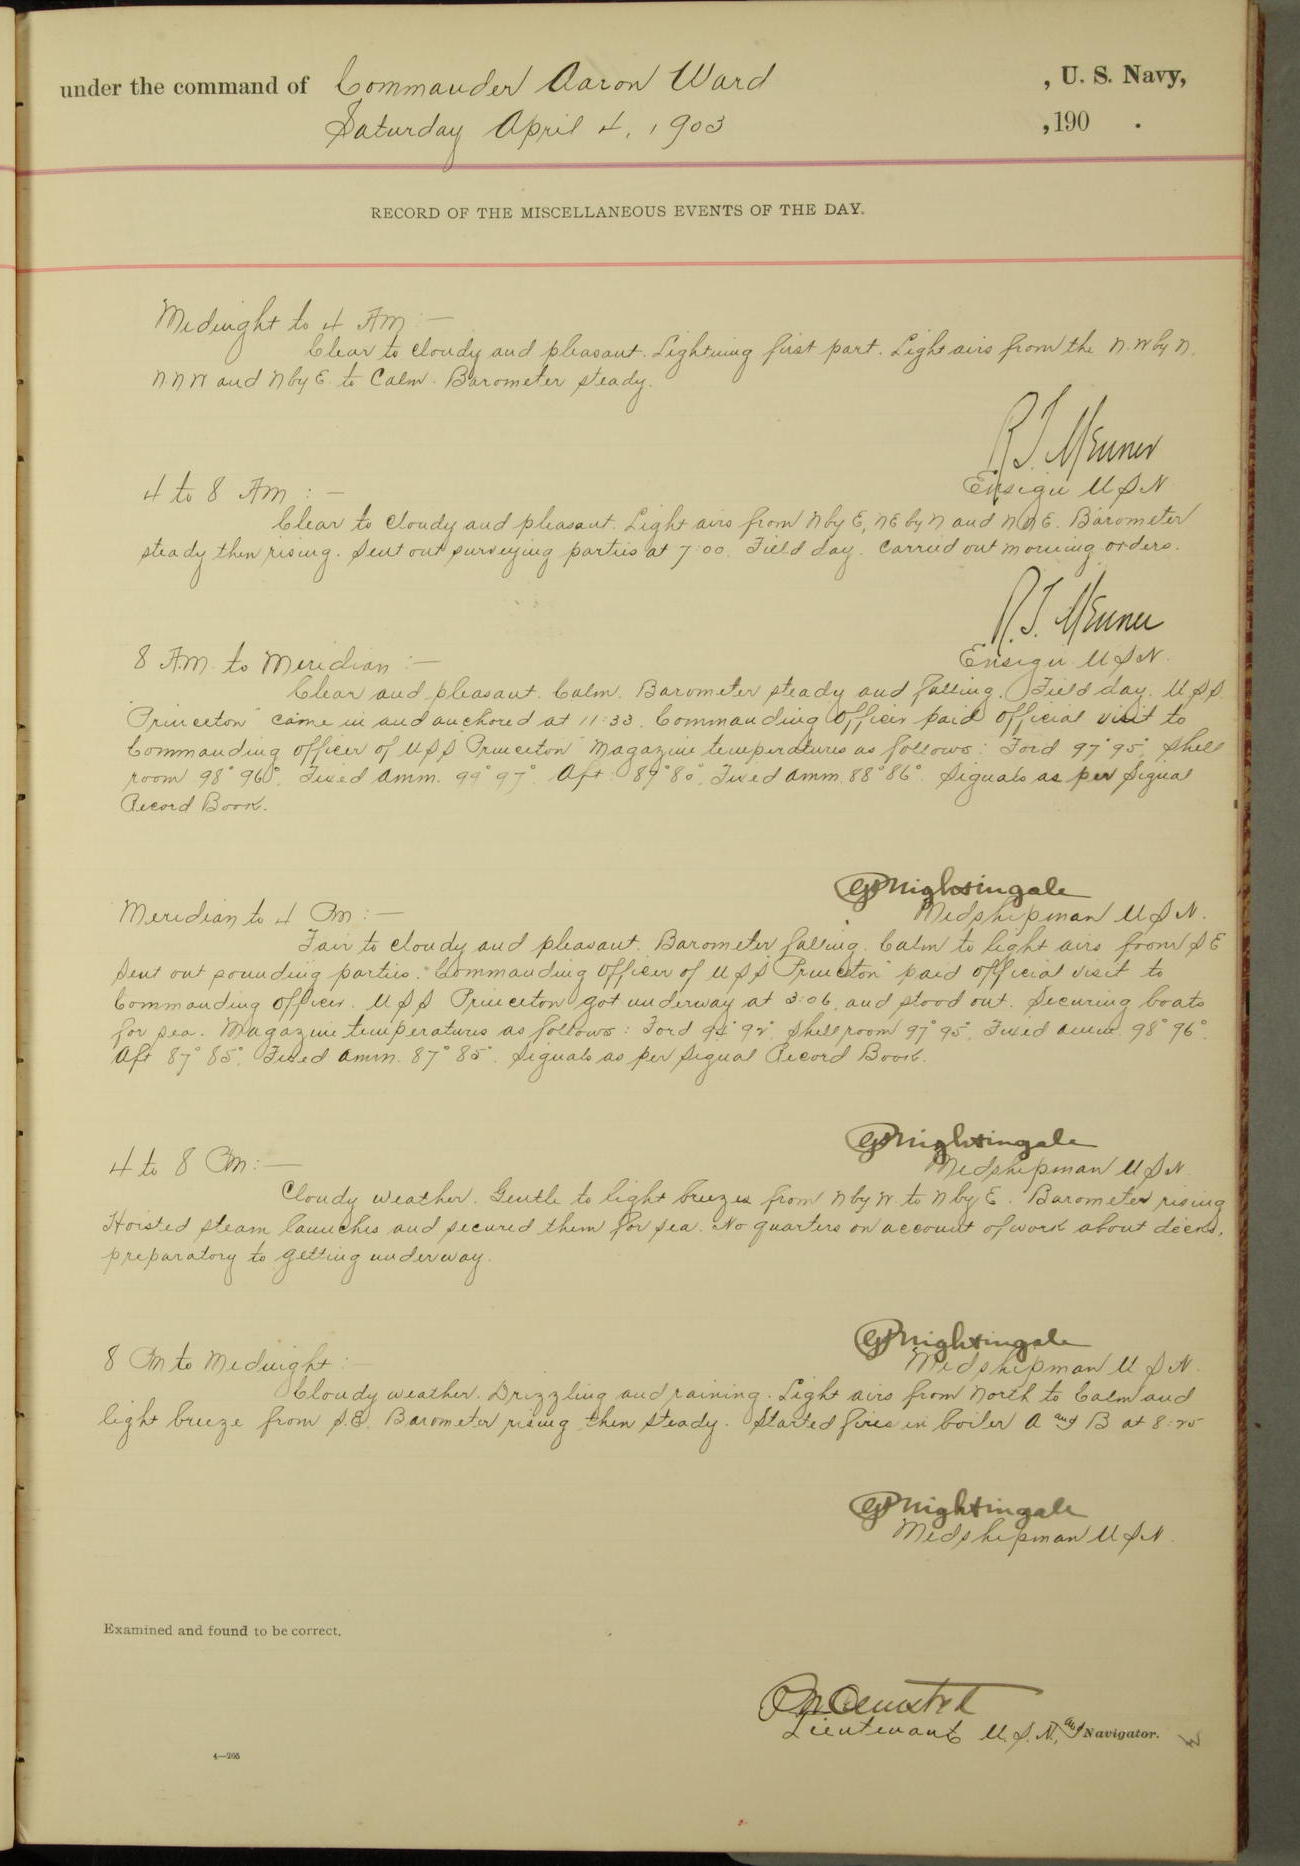 under the command of Commander Aaron Ward , U. S. Navy,
Saturday April 4, 1903 , 190 .
RECORD OF THE MISCELLANEOUS EVENTS OF THE DAY.
Midnight to 4 AM :—
Clear to cloudy and pleasant. Lightning first part. Light airs from the N.W by N.
NNW and N by E. to Calm. Barometer steady.
Ensign U S N
4 to 8 AM : —
Clear to cloudy and pleasant. Light airs from N by E, NE by N and NNE. Barometer
steady then rising. Sent out surveying parties at 7:00. Field day. Carried out morning orders.
Ensign U S N.
8 AM. to Meridian :—
Clear and pleasant. Calm. Barometer steady and falling. Field day. U S S
"Princeton" came in and anchored at 11:33. Commanding Officer paid official visit to
Commanding Officer of U S S "Princeton" Magazine temperatures as follows: Ford 97° 95°, Shell
room 98° 96°. Fixed Amm. 99° 97°. Aft. 89° 80°, Fixed Amm. 88° 86°. Signals as per Signal
Record Book.
Nightingale
Midshipman U S N.
Meridian to 4 PM : —
Fair to cloudy and pleasant. Barometer falling. Calm to light airs from S E
Sent out sounding parties. Commanding Officer of U S S "Princeton" paid official visit to
Commanding Officer. U S S Princeton got underway at 3:06, and stood out. Securing boats
for sea. Magazine temperatures as follows: Ford 94° 92°, Shell room 97° 95°, Fixed amm. 98° 96°.
Aft 87° 85°, Fixed Amm. 87° 85°. Signals as per Signal Record Book.
Nightingale
Midshipman U S N.
4 to 8 PM : —
Cloudy weather. Gentle to light breezes from N by W to N by E. Barometer rising
Hoisted steam launches and secured them for sea. No quarters on account of work about decks,
preparatory to getting underway.
Nightingale
Midshipman U S N.
8 PM to Midnight : —
Cloudy weather. Drizzling and raining. Light airs from North to Calm and
light breeze from S.E. Barometer rising then steady. Started fires in boiler A and B at 8:25
Nightingale
Midshipman U S N.
Examined and found to be correct.
Lieutenant U. S. N., and Navigator.
4—205